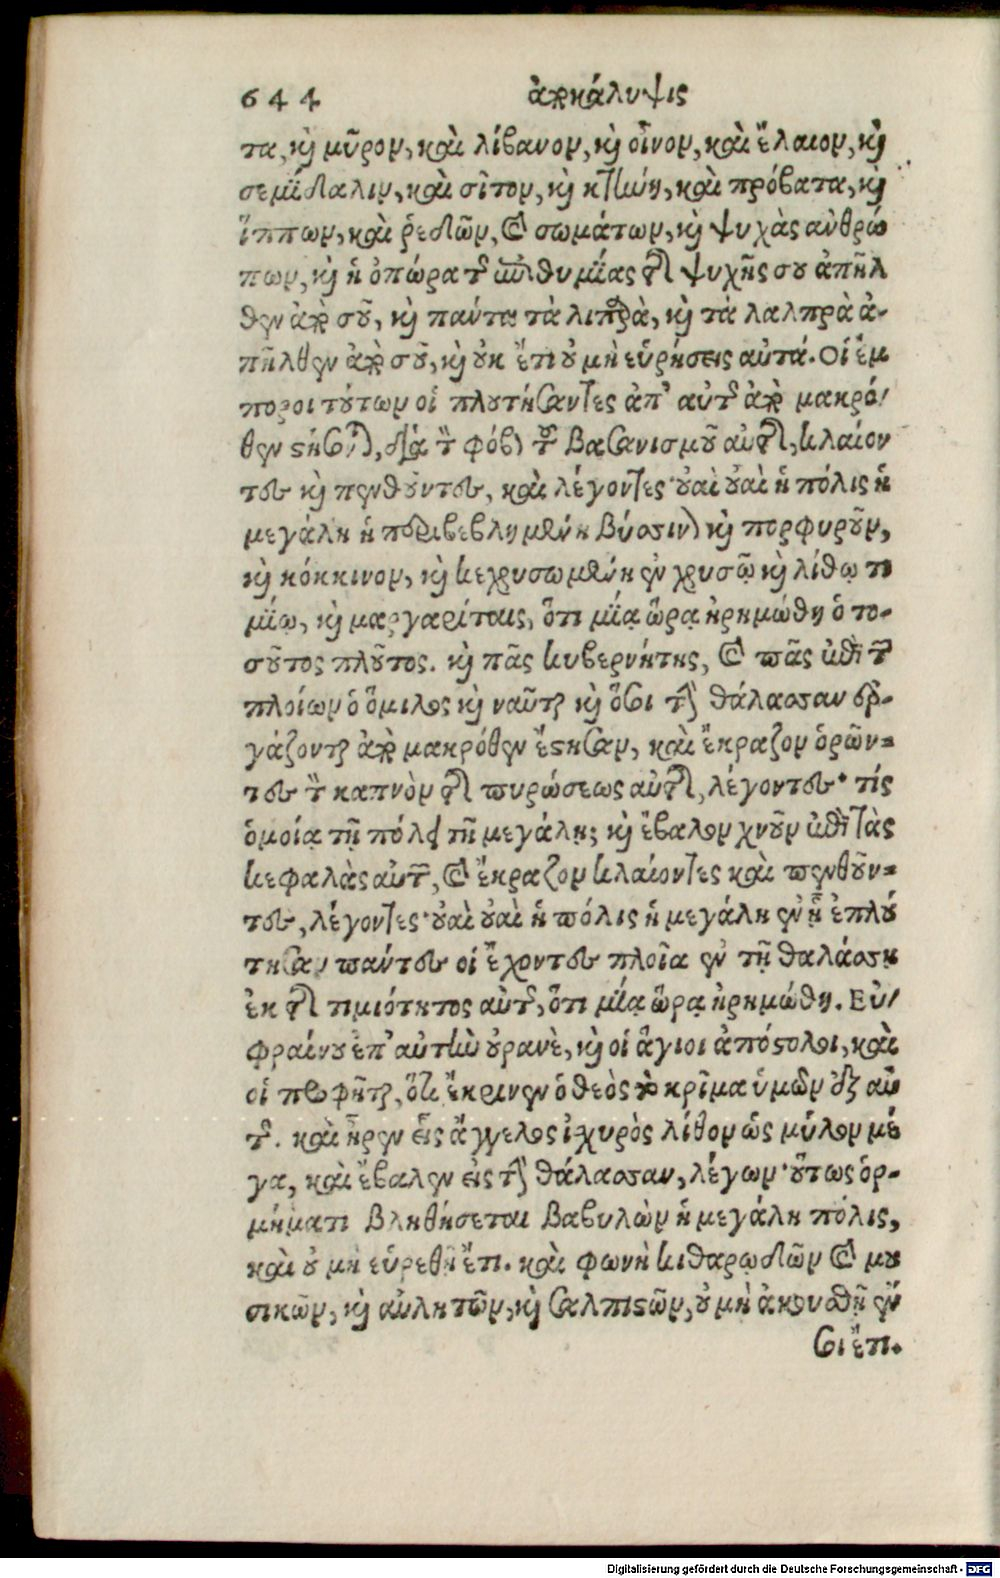 644 ἀποκάλυψις
τα, καὶ μῦρον, καὶ λίβανον, καὶ οἶνον, καὶ ἔλαιον, καὶ
σεμίδαλιν, καὶ σῖτον, καὶ κτήνη, καὶ πρόβατα, καὶ
ἵππων, καὶ ῥεδῶν, καὶ σωμάτων, καὶ ψυχὰς ἀνθρώ
πων, καὶ ἡ ὀπώρα τῆς ἐπιθυμίας τῆς ψυχῆς σου ἀπῆλ
θεν ἀπὸ σοῦ, καὶ πάντα τὰ λιπαρὰ, καὶ τὰ λαλπρὰ ἀ-
πῆλθεν ἀπὸ σοῦ, καὶ οὐκ ἔτι οὐ μὴ εὑρήσεις αὐτά. Οἱ ἔμ
ποροι τούτων οἱ πλουτήσαντες ἀπ' αὐτῆς ἀπὸ μακρό/
θεν στήσονται, διὰ τὸν φόβον τοῦ βασανισμοῦ αὐτῆς, κλαίον
τες καὶ πενθοῦντες, καὶ λέγοντες· οὐαὶ οὐαὶ ἡ πόλις ἡ
μεγάλη ἡ περιβεβλημένη βύσσινον καὶ πορφυροῦν,
καὶ κόκκινον, καὶ κεχρυσωμένη ἐν χρυσῷ καὶ λίθῳ τι
μίῳ, καὶ μαργαρίταις, ὅτι μίᾳ ὥρᾳ ἠρημώθη ὁ το-
σοῦτος πλοῦτος. καὶ πᾶς κυβερνήτης, καὶ πᾶς ἐπὶ τῶν
πλοίων ὁ ὅμιλος καὶ ναῦται καὶ ὅσοι τὴν θάλασσαν ἐρ-
γάζονται ἀπὸ μακρόθεν ἔστησαν, καὶ ἔκραζον ὁρῶν=
τες τὸν καπνὸν τῆς πυρώσεως αὐτῆς, λέγοντες· τίς
ὁμοία τῇ πόλει τῇ μεγάλῃ; καὶ ἔβαλον χνοῦν ἐπὶ τὰς
κεφαλὰς αὐτῶν, καὶ ἔκραζον κλαίοντες καὶ πενθοῦν=
τες, λέγοντες· οὐαὶ οὐαὶ ἡ πόλις ἡ μεγάλη ἐν ᾗ ἐπλού
τησαν πάντες οἱ ἔχοντες πλοῖα ἐν τῇ θαλάσσῃ
ἐκ τῆς τιμιότητος αὐτῆς, ὅτι μίᾳ ὥρᾳ ἠρημώθη. Εὐ/
φραίνου ἐπ' αὐτὴν οὐρανὲ, καὶ οἱ ἅγιοι ἀπόστολοι, καὶ
οἱ προφῆται, ὅτι ἔκρινεν ὁ θεὸς τὸ κρῖμα ὑμῶν ἐξ αὐ
τῆς. καὶ ἦρεν εἷς ἄγγελος ἰσχυρὸς λίθον ὡς μύλον μέ
γα, καὶ ἔβαλεν εἰς τὴν θάλασσαν, λέγων· οὕτως ὁρ-
μήματι βληθήσεται Βαβυλὼν ἡ μεγάλη πόλις,
καὶ οὐ μὴ εὑρεθῇ ἔτι. καὶ φωνὴ κιθαρῳδῶν καὶ μου
σικῶν, καὶ αὐλητῶν, καὶ σαλπιστῶν, οὐ μὴ ἀκουσθῇ ἐν
σοὶ ἔτι.
Digitalisierung gefördert durch die Deutsche Forschungsgemeinschaft - DFG